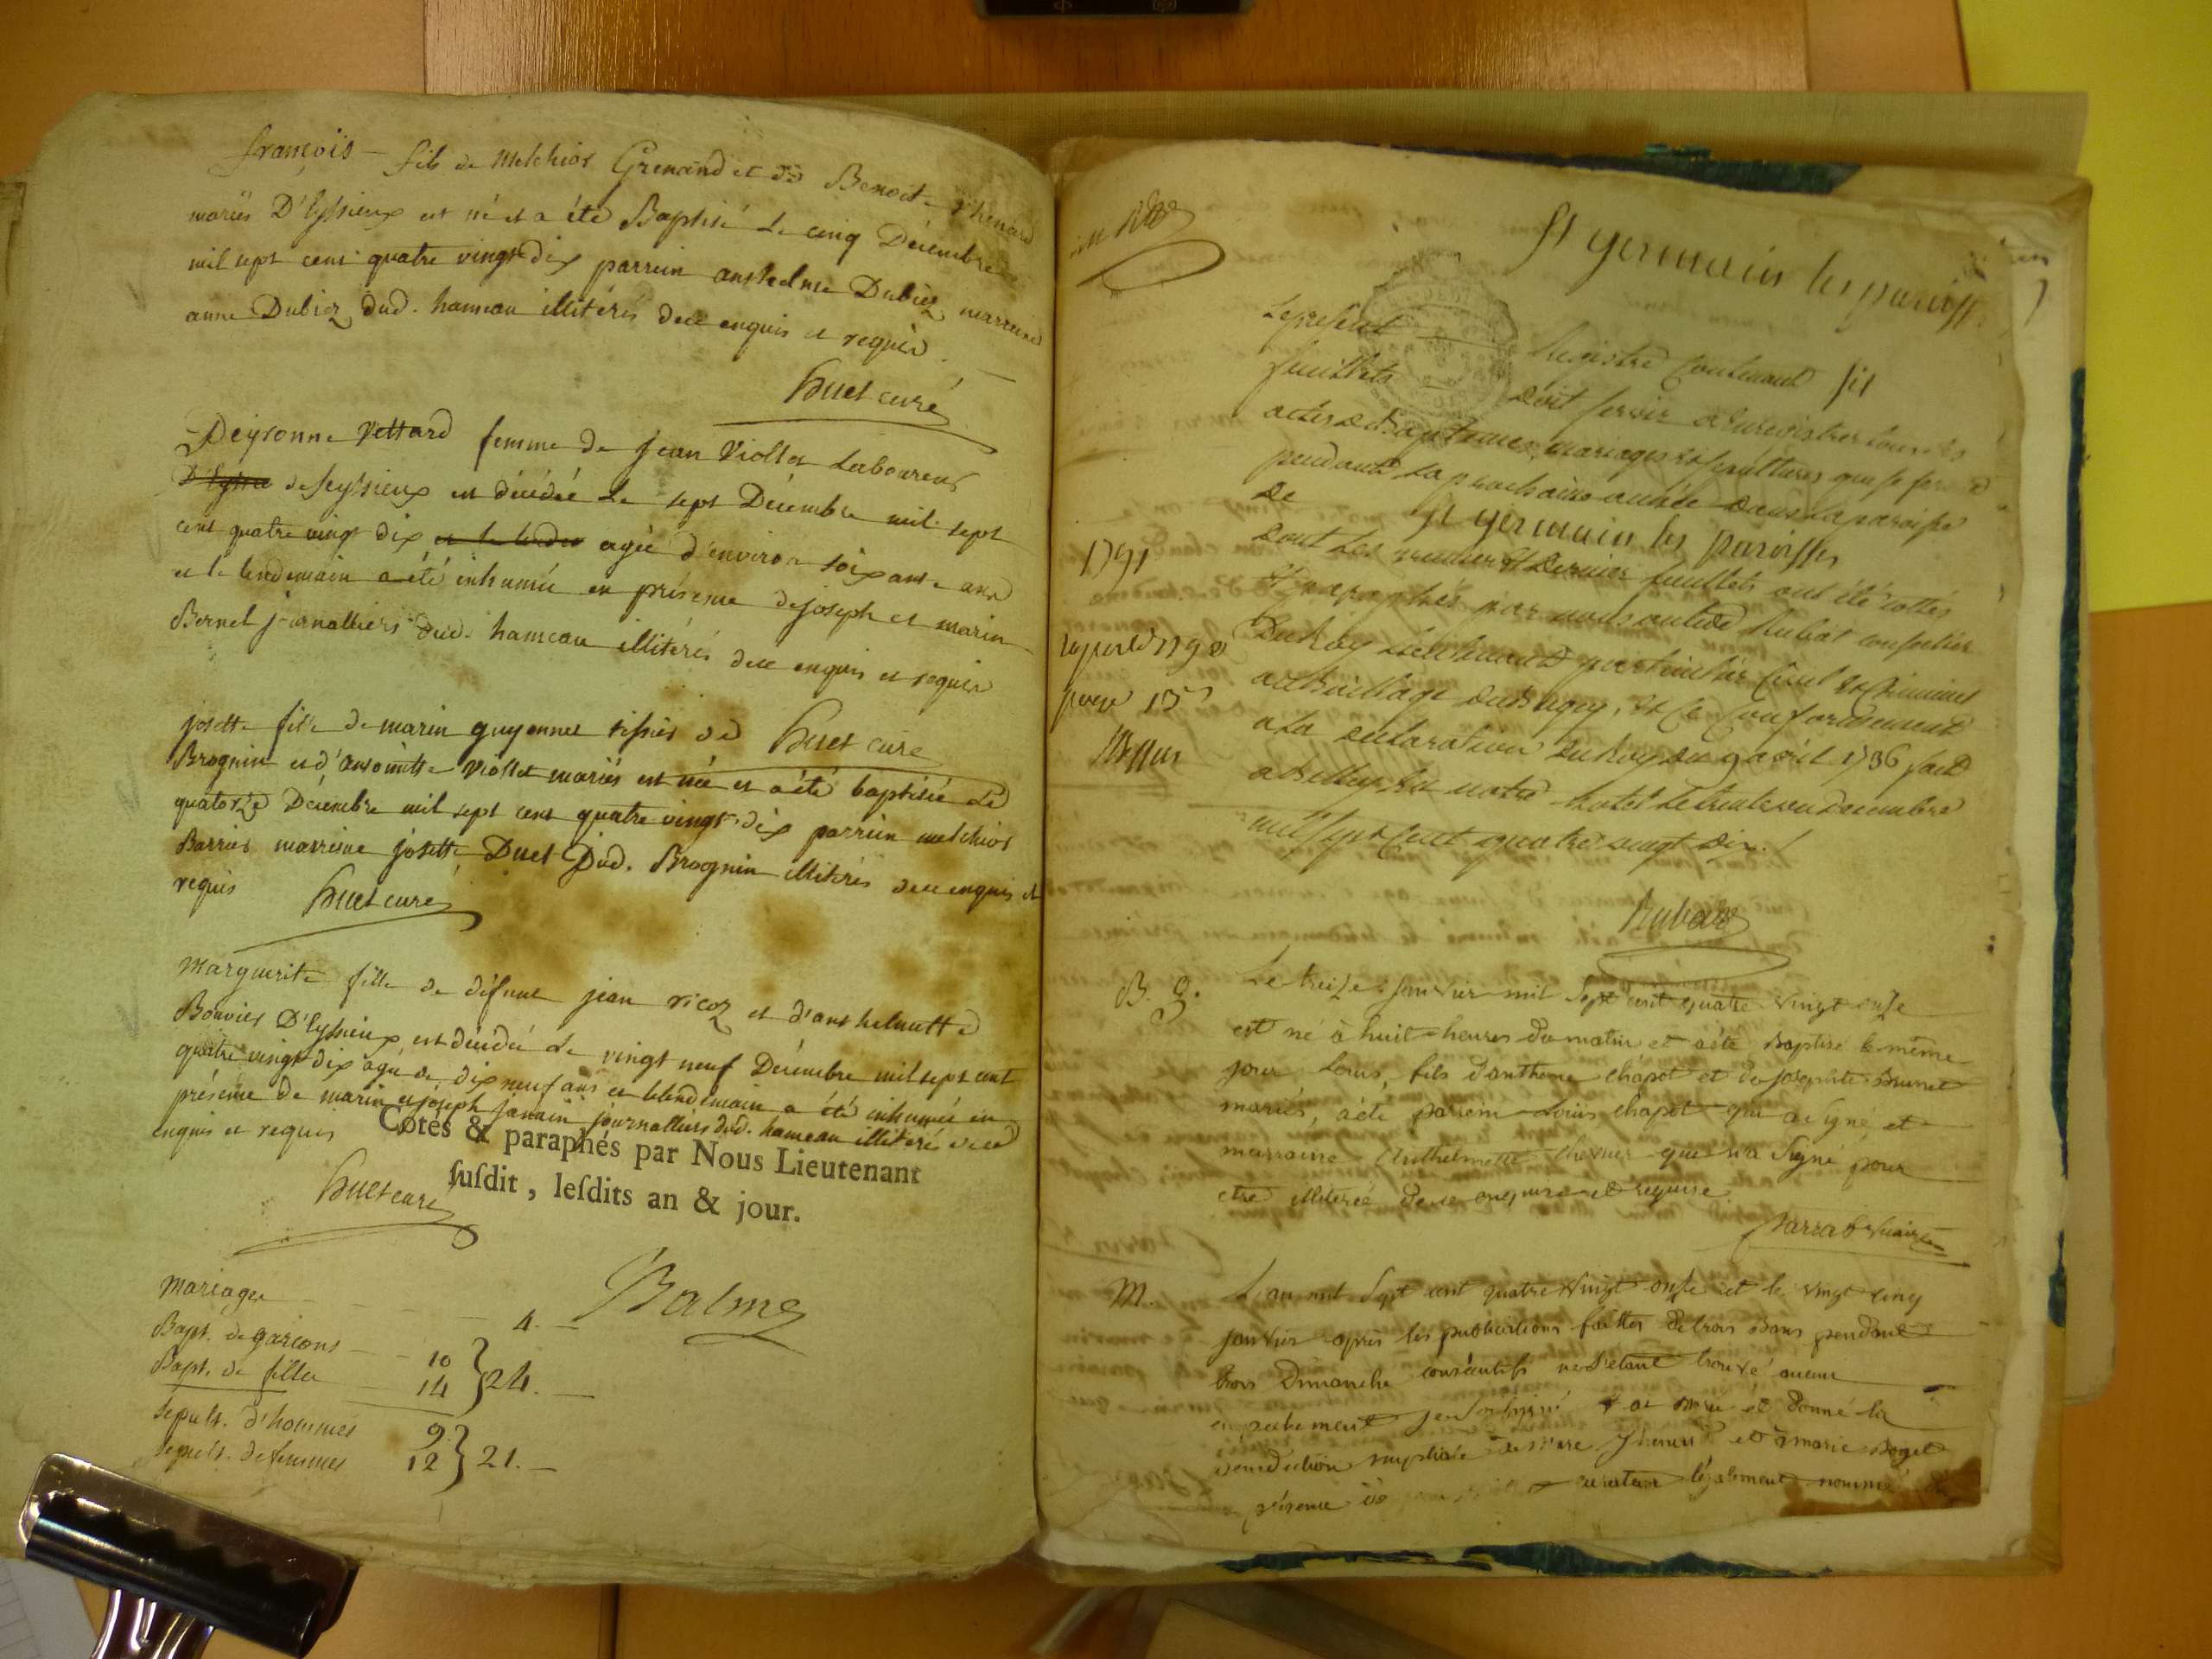 françois — fils de Melchior Grenand et de Benoite
mariés D'Eyssieux est né et a été Baptisé Le cinq Décembre
mil sept cent quatre vingt dix parrein anthelme Dubiez marreine
anne Dubiez dud. hameau illitérés de ce enquis et requis.
huet curé
Peyronne Vettard femme de jean Viollet Laboureur
de seyssieux est décédée Le sept Décembre mil sept
cent quatre vingt dix agée d'environ soixante ans
et le lendemain a été inhumée en présence de joseph et marin
Bernel journalliers dud. hameau illitérés de ce enquis et requis
josette fille de marin guyonnet tissier de huet curé
Brognin et d'antoinette Viollet mariés est née et a été baptisée Le
quatorze Décembre mil sept cent quatre vingt dix parrein melchior
Barrier marreine josette Duet Dud. Brognin illitérés de ce enquis et
requis huet curé
Marguerite fille de défunt jean ricoz et d'anthelmette
Bouvier D'Eyssieux est décédé Le vingt neuf Décembre mil sept cent
quatre vingt dix agée de dix neuf ans et le lendemain a été inhumée en
présence de marin et joseph janain journalliers dud. hameau illitéré de ce
enquis et requis
Cotés & paraphés par Nous Lieutenant
ſuſdit, leſdits an & jour.
huet curé
Balme
Mariages 4. —
Bapt. de garçons — 10
Bapt. de filles 14 } 24. —
sepult. d'hommes 9
sepult. de femmes 12 } 21. —
St germain les paroiss
Le présent Registre Contenant six
feuillets doit servir a Enregistrer tous les
actes de Baptemes, mariages et sepultures qui se feront
pendant La prochaine année dans La paroisse
de St germain les paroisses
1791
dont Les premier et Dernier feuillets ont été cottés
et paraphés par nous antide Rubat conseiller
Du Roy Lieutenant particulier Civil et Criminel
au Bailliage du Bugey, et Ce Conformement
a La declaration du Roy du 9 avril 1736 fait
a Belley en notre hotel Le trente un decembre
mil sept Cent quatre vingt dix.
Rubat
B. g. Le treize janvier mil sept cent quatre vingt onze
est né à huit heures du matin et a été Baptisé le même
jour Louis, fils d'anthelme chapot et de josephte Brunet
mariés, a été parrein Louis chapot qui a signé et
marraine Anthelmette chevrier que n'a signé pour
etre illiterée de ce enquise et requise.
M. L'an mil sept cent quatre vingt onze et le vingt cinq
janvier après les publications faittes de trois Bans pendant
trois Dimanche consécutifs ne s'etant trouvé aucun
empechement j'ai soussigné et donné la
benediction nuptiale et marie Roget
presence curateur légalement nommé